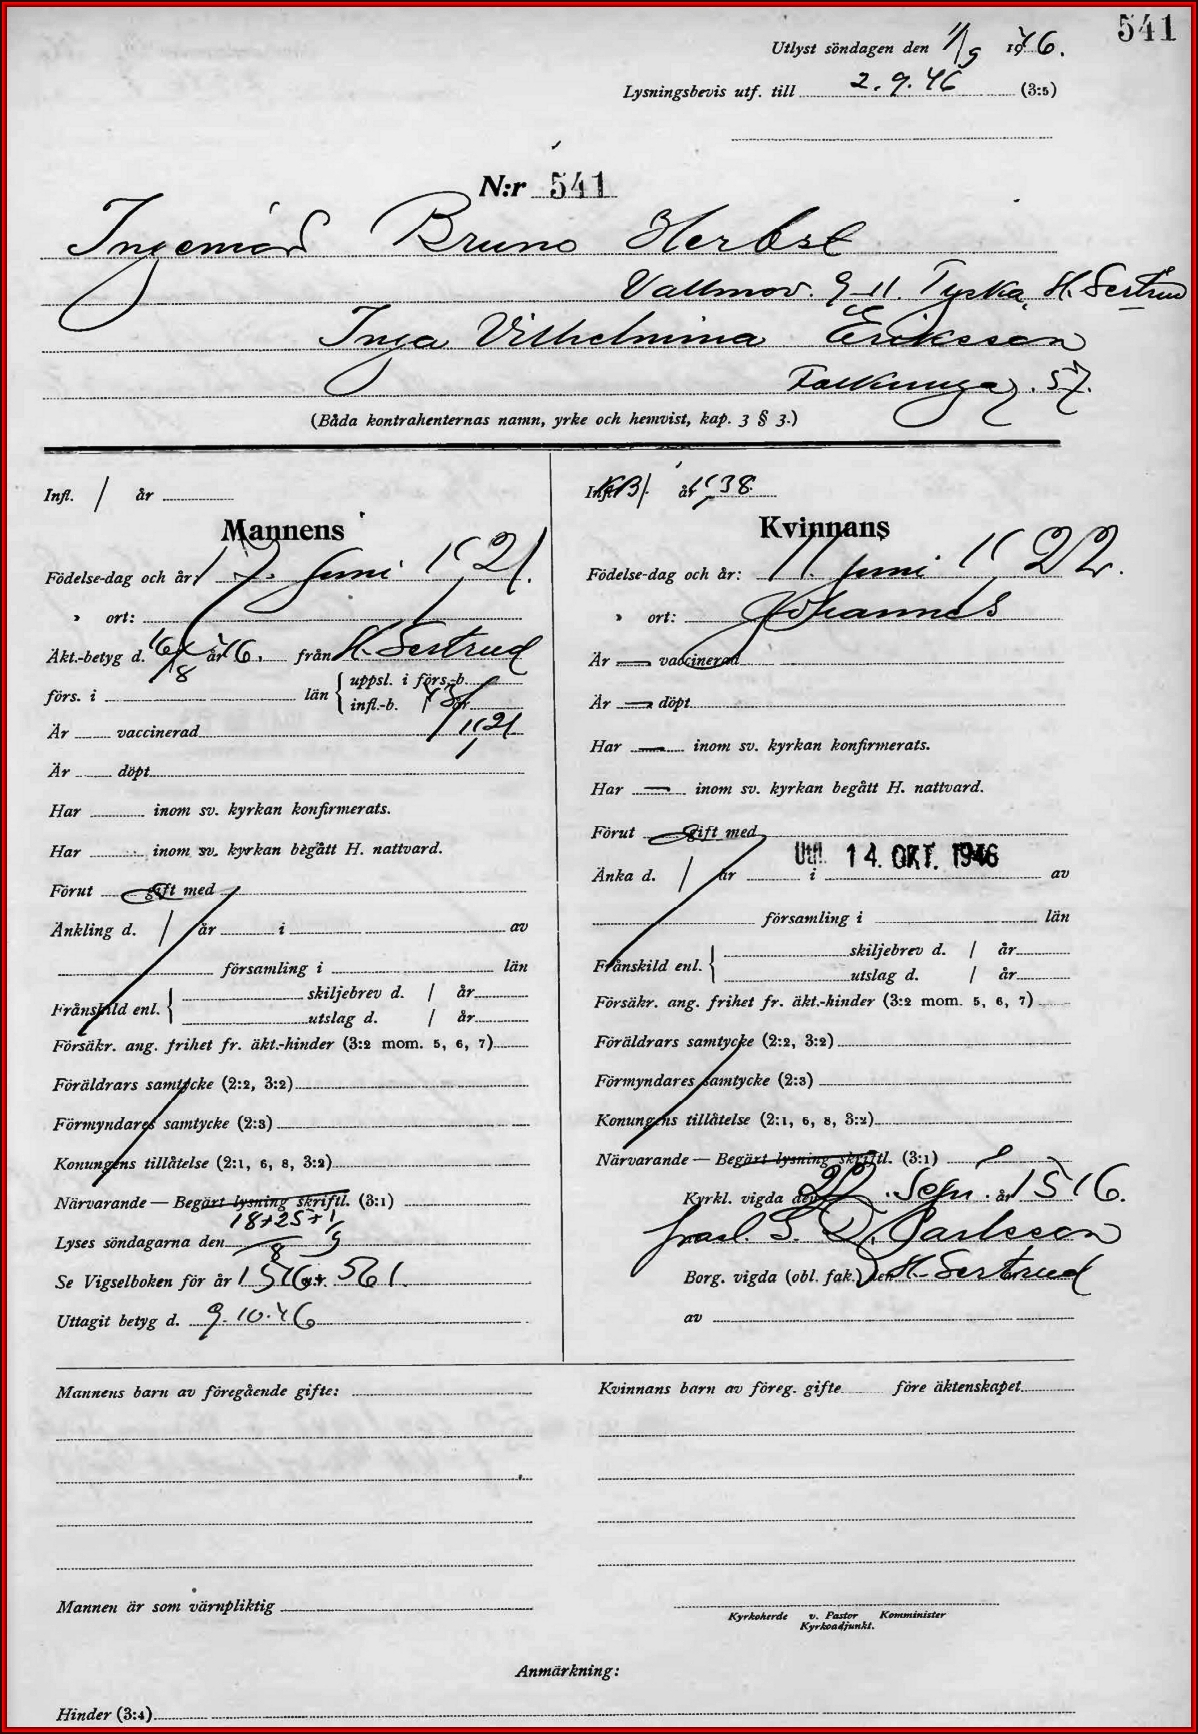 541
Utlyst söndagen den 1/9 1946.
Lysningsbevis utf. till 2.9.46 (3:5)
N:r 541
Ingeniör Bruno Herbst
Vallmov. 9-11. Tyska H. Gertrud
Inga Vilhelmina Eriksson
57.
(Båda kontrahenternas namn, yrke och hemvist, kap. 3 § 3.)
Infl. / år
Mannens
Födelse-dag och år: 17. Juni 1921.
» ort:
Äkt.-betyg d. 16/8 år 46. från H. Gertrud
förs. i län { uppsl. i förs.-b.
infl.-b. / år
Är vaccinerad
Är döpt
Har inom sv. kyrkan konfirmerats.
Har inom sv. kyrkan begått H. nattvard.
Förut gift med
Änkling d. / år i av
församling i län
Frånskild enl. { skiljebrev d. / år
utslag d. / år
Försäkr. ang. frihet fr. äkt.-hinder (3:2 mom. 5, 6, 7)
Föräldrars samtycke (2:2, 3:2)
Förmyndares samtycke (2:3)
Konungens tillåtelse (2:1, 6, 8, 3:2)
Närvarande — Begärt lysning skriftl. (3:1)
Lyses söndagarna den 18+25/8 + 1/9
Se Vigselboken för år 1946 n:r 561.
Uttagit betyg d. 9.10.46
Infl. KB/ år 1938
Kvinnans
Födelse-dag och år: 11 Juni 1922.
» ort: Johannes
Är — vaccinerad
Är — döpt
Har — inom sv. kyrkan konfirmerats.
Har — inom sv. kyrkan begått H. nattvard.
Förut gift med
Utfl. 14. OKT. 1946
Änka d. / år i av
församling i län
Frånskild enl. { skiljebrev d. / år
utslag d. / år
Försäkr. ang. frihet fr. äkt.-hinder (3:2 mom. 5, 6, 7)
Föräldrars samtycke (2:2, 3:2)
Förmyndares samtycke (2:3)
Konungens tillåtelse (2:1, 6, 8, 3:2)
Närvarande — Begärt lysning skriftl. (3:1)
Kyrkl. vigda den 22. Sept. år 1946.
D. Carlsson
Borg. vigda (obl. fak.) den H. Gertrud
av
Mannens barn av föregående gifte:
Kvinnans barn av föreg. gifte före äktenskapet
Mannen är som värnpliktig
Kyrkoherde v. Pastor Komminister
Kyrkoadjunkt.
Anmärkning:
Hinder (3:4)